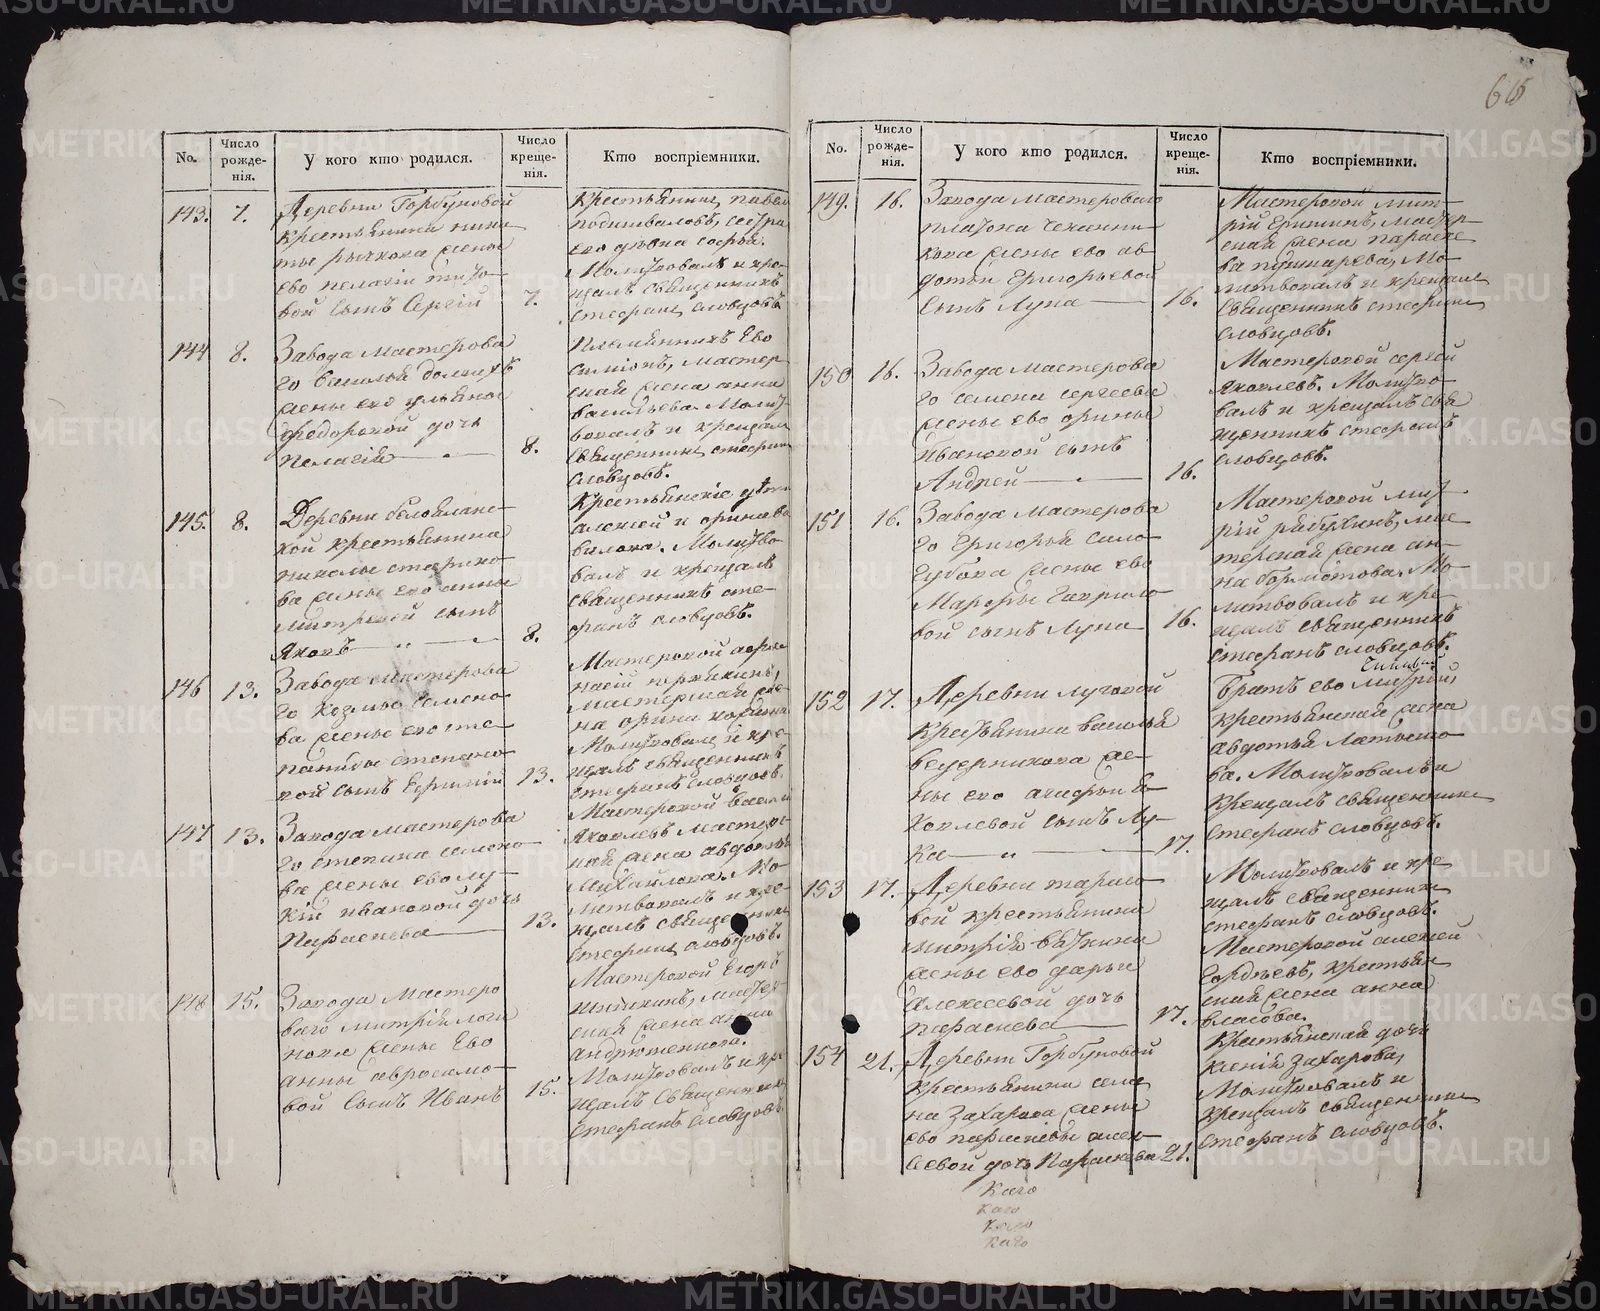 No.
Число рожде-нія.
У кого кто родился.
Число креще-нія.
Кто воспріемники.
143.
7.
Деревни Горбуновой
крестьянина ники
ты рычкова жены
ево пелагіи тито
вой сынъ Сергій
7.
крестьянинъ павел
его дѣвка софья.
Молитвовалъ и кре
щалъ священникъ
стефанъ словцовъ
144
8.
Завода мастерова
го василья долгихъ
жены ево ульяны
федоровой дочь
пелагія
8.
племянникъ Ево
симіонъ, мастер
ская жена анна
васильева. Молит
вовалъ и крещалъ
священникъ стефанъ
словцовъ.
145.
8.
Деревни белоглинс
кой крестьянина
николы старико
ва жены ево анны
митревой сынъ
Яковъ
8.
Крестьянскіе дѣти
алексей и орина ва
вилова. Молитво
валъ и крещалъ
священникъ сте
фанъ словцовъ.
146
13.
Завода мастерова
го козмы семено
ва жены ево сте
паниды степано
вой сынъ Ефимій
13.
Мастеровой афон
насій
мастерская же
на орина
Молитвовалъ и кре
щалъ священникъ
стефанъ словцовъ.
147
13.
Завода мастерова
го степана семено
ва жены ево лу
кіи ивановой дочь
Параскева
13.
Мастеровой васил
Яковлевъ мастерс
кая жена авдотья
Михайлова. Мо
литвовалъ и кре
щалъ священникъ
стефанъ словцовъ.
148
15.
Завода Мастеро
ваго митрія логи
нова жены Ево
анны авросимо
вой сынъ Иванъ
15.
Мастеровой Егоръ
шишкинъ, мастер
ская жена анна
андрюшенкова.
Молитвовалъ и кре
щалъ священникъ
стефанъ словцовъ.
665
No.
Число рожде-нія.
У кого кто родился.
Число креще-нія.
Кто воспріемники.
149.
16.
Завода мастероваго
платона чеканни
кова жены ево ав
дотьи Григорьевой
сынъ Лука
16.
Мастеровой мит
рій Еришинъ, мастер
ская жена параске
ва пушкарева, Мо
литвовалъ и крещалъ
священникъ стефанъ
словцовъ.
150
16.
Завода мастерова
го семена сергеева
жены ево орины
Ивановой сынъ
Андрей
16.
Мастеровой сергей
Яковлевъ. Молитво
валъ и крещалъ свя
щенникъ стефанъ
словцовъ.
151
16.
Завода мастерова
го Григорья соло
губова жены ево
Марфы гаврило
вой сынъ Лука
16.
Мастеровой мит
рій рябухинъ, мас
терская жена ан
на бормотова. Мо
литвовалъ и кре
щалъ священникъ
стефанъ словцовъ.
152
17.
Деревни луговой
крестьянина василья
ведерникова же
ны ево агафьи Я
ковлевой сынъ Лу
ка
17.
Братъ ево митрій,
крестьянская жена
авдотья Латыше
ва. Молитвовалъ и
крещалъ священникъ
стефанъ словцовъ.
153
17.
Деревни тарасо
вой крестьянина
митрія вяткина
жены ево дарьи
Алексеевой дочь
параскева
17.
Молитвовалъ и кре
щалъ священникъ
стефанъ словцовъ.
Мастеровой алексей
Гордѣевъ, крестьян
ская жена анна
власова.
154
21.
Деревни Горбуновой
Крестьянина семе
на Захарова жены
ево парасковьи алек
сеевой дочь Параскева
21.
Крестьянская дочь
ксенія Захарова,
Молитвовалъ и
крещалъ священникъ
стефанъ словцовъ.
каго
каго
каго
каго